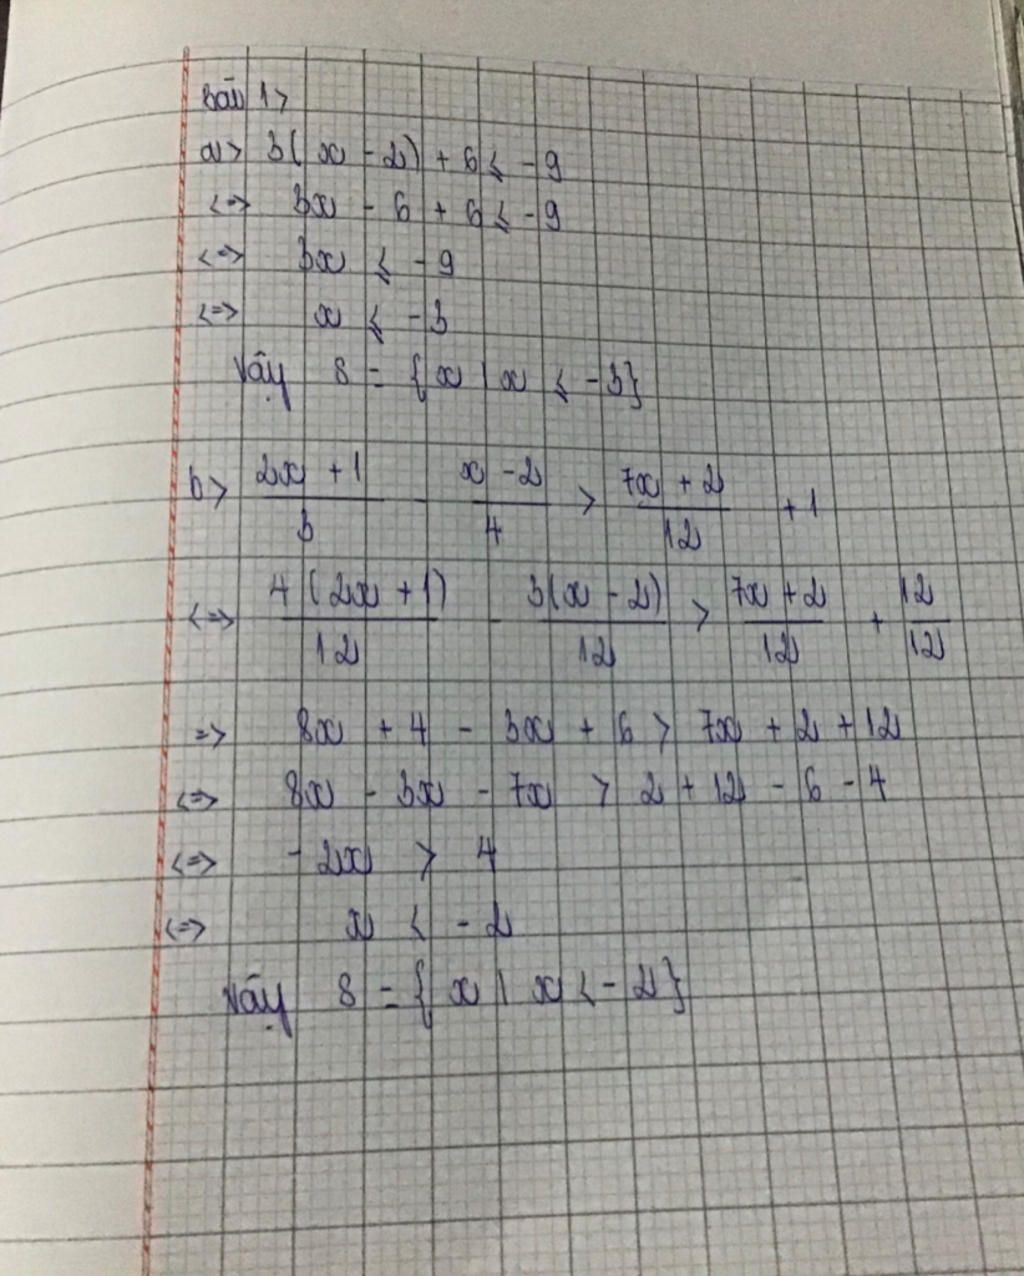 Bài 1>
a> 3(x - 2) + 6 ≤ -9
<=> 3x - 6 + 6 ≤ -9
<=> 3x ≤ -9
<=> x ≤ -3
Vậy S = {x | x ≤ -3}
b> \frac{2x + 1}{3} - \frac{x - 2}{4} > \frac{7x + 2}{12} + 1
<=> \frac{4(2x + 1)}{12} - \frac{3(x - 2)}{12} > \frac{7x + 2}{12} + \frac{12}{12}
=> 8x + 4 - 3x + 6 > 7x + 2 + 12
<=> 8x - 3x - 7x > 2 + 12 - 6 - 4
<=> -2x > 4
<=> x < -2
Vậy S = {x | x < -2}